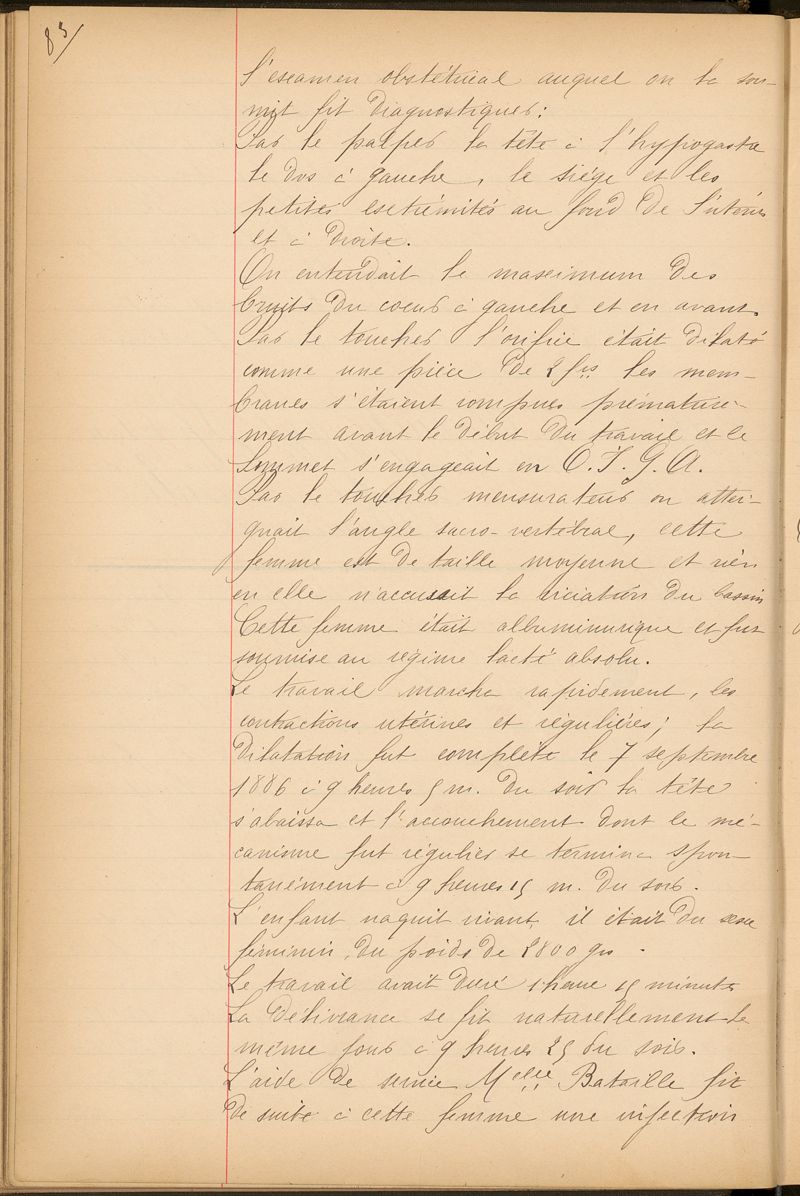 83/
L'examen obstétrical auquel on la sou-
mit fit diagnostiquer:
Par le palper la tête à l'hypogastre
le dos à gauche, le siège et les
petites extrémités au fond de l'utérus
et à droite.
On entendait le maximum des
bruits du coeur à gauche et en avant.
Par le toucher l'orifice était dilaté
comme une pièce de 2 frs les mem-
branes s'étaient rompues prématuré-
ment avant le début du travail et le
sommet s'engageait en O.I.G.A.
Par le toucher mensurateur on attei-
gnait l'angle sacro-vertébral, cette
femme est de taille moyenne et rien
en elle n'accusait la viciation du bassin
Cette femme était albuminurique et fut
soumise au régime lacté absolu.
Le travail marcha rapidement, les
contractions utérines et régulières; la
dilatation fut complète le 7 septembre
1886 à 9 heures 5 m. du soir la tête
s'abaissa et l'accouchement dont le mé-
canisme fut régulier se termina spon-
tanément à 9 heures 15 m. du soir.
L'enfant naquit vivant, il était du sexe
féminin, du poids de 2800 grs.
Le travail avait duré 1 heure 15 minutes
La délivrance se fit naturellement le
même jour à 9 heures 25 du soir.
L'aide de service Melle Bataille fit
de suite à cette femme une injection